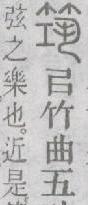 筑㠯竹曲五
弦之樂也。近是